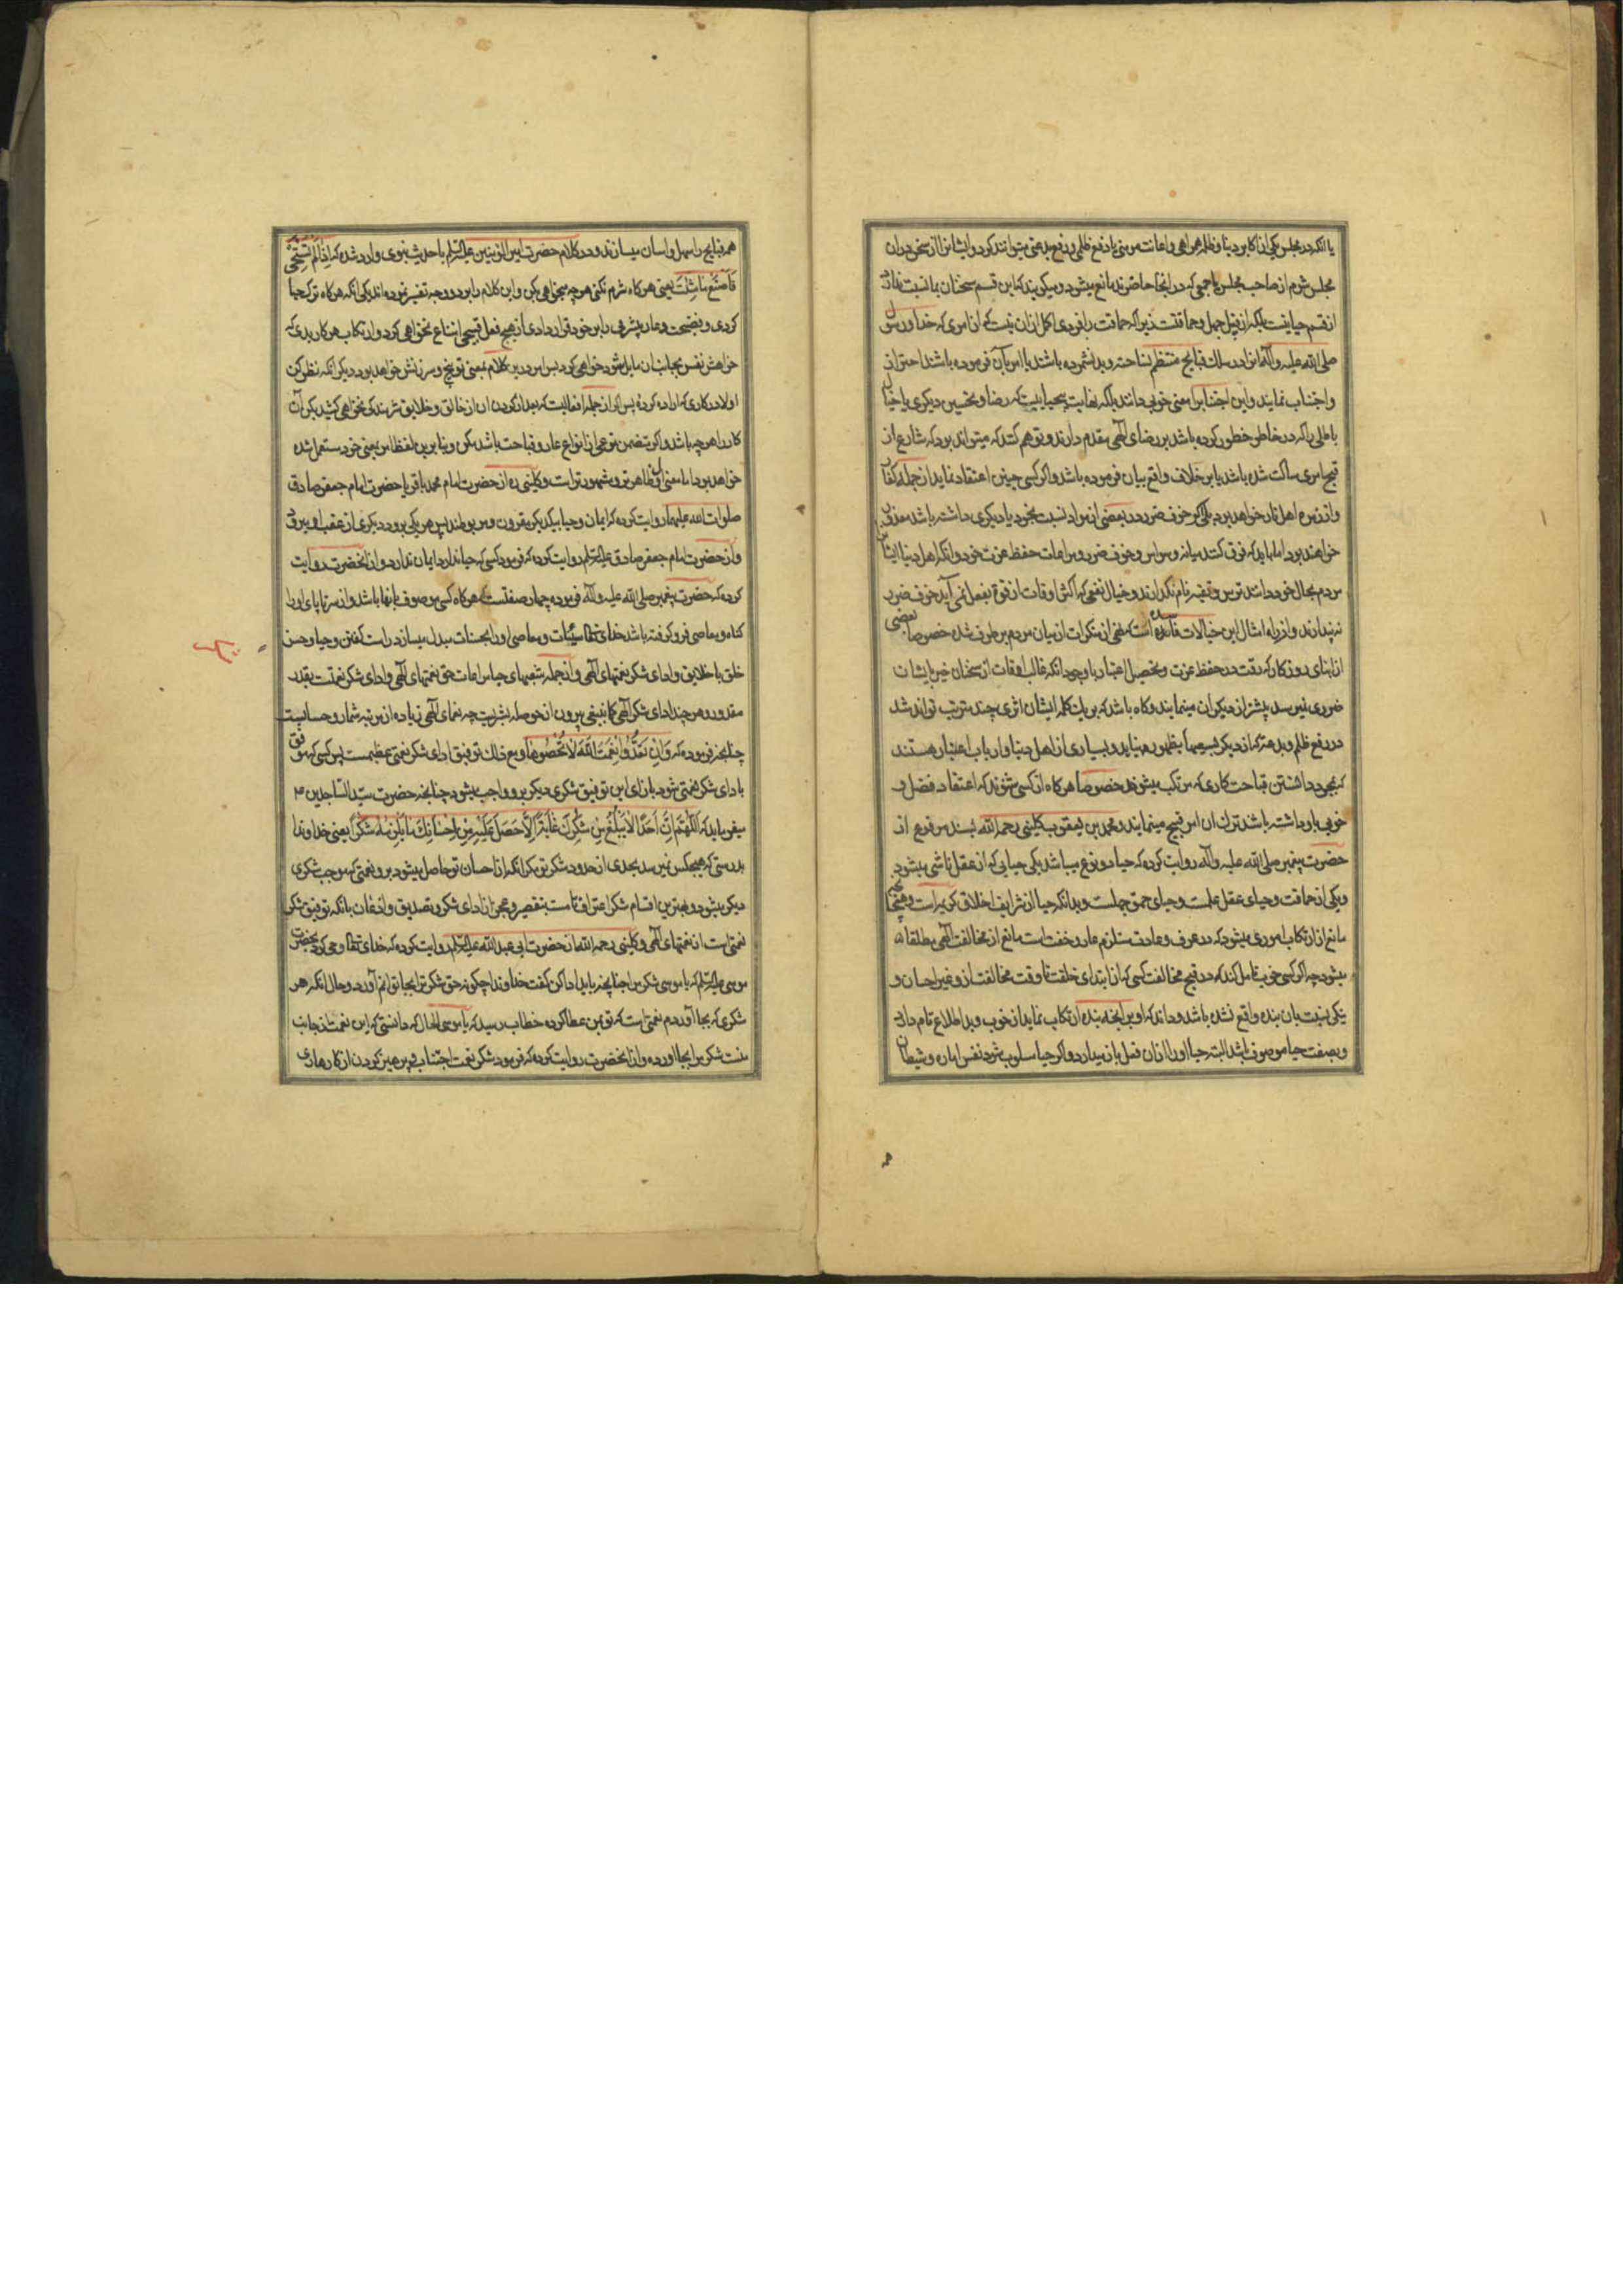 یا آنکه در مجلس یکی از اکابر دنیا و ظلمه همراهی و اعانت مومنی یا دفع ظلمی و رفع بدعتی میتوانند کرد و ایشانرا از سخن در ان
مجلس شرم از صاحب مجلس یا جمعی که در انجا حاضرند مانع میشود و میکویند که این قسم سخنان بما نسبت ندارد
از قسم حیا نیست بلکه از قبیل جهل و حماقتست زیرا که حماقت را فردی اکمل ازان نیست که از امری که خدا و رسول
صلی الله علیه و آله انرا در سلک قبایح منتظم نساخته و بد نشمرده باشند یا امر بآن فرموده باشند احتراز
و اجتناب نمایند و این اجتناب را معنی خوبی دانند بلکه نهایت بیحیاییست که رضا و تحسین دیکری یا خیال
باطلی را که در خاطر خطور کرده باشد بر رضای الهی مقدم دارند و توهم کنند که میتواند بود که شارع از
قبح امری ساکت شده باشد یا بر خلاف واقع بیان فرموده باشد و اکر کسی چنین اعتقاد نماید از جمله کفار
و از زمره اهل نار خواهد بود بلی اکر خوف ضرر در بعضی از مواد نسبت بخود یا دیکری داشته باشد معذور
خواهند بود اما باید که فرق کنند میانه وسواس و خوف ضرر و مراعات حفظ عزت خود و آنکه اهل دنیا ایشان
مردم بحال خود دانند ترس و تقیه نام نکذارند و خیال نفعی که اکثر اوقات از قوه بفعل نمی آید خوف ضرر
نه پندارند و از راه امثال این خیالات فاسده است که نهی از منکرات از میان مردم برطرف شده خصوصا بعضی
از ابنای روزکار که دقت در حفظ عزت و تحصیل اعتبار با وجود انکه غالب اوقات از سخنان خیر بایشان
ضرری نمیرسد بیشتر از دیکران مینمایند و کاه باشد که بر یک کلمه ایشان اثری چند مترتب تواند شد
در دفع ظلم و بدعت که از دیکری بظهور میاید و بسیاری از اهل دنیا و ارباب اعتبار هستند
که بمجرد داشتن قباحت کاری که مرتکب میشوند خصوصا هرکاه از کسی شنوند که اعتقاد فضل و
خوبی باو داشته باشند ترک ان امر قبیح مینمایند و محمد بن یعقوب کلینی رحمه الله بسند مرفوع از
حضرت پیغمبر صلی الله علیه و آله روایت کرده که حیا دو نوع میباشد یکی حیایی که از عقل ناشی میشود
و یکی از حماقت و حیای عقل علمست و حیای حمق جهلست و بدانکه حیا از شرایف اخلاق کریمه است و همچنانچه
مانع از ارتکاب اموری میشود که در عرف و عادت مستلزم عار و خفت است مانع از مخالفت الهی مطلقا
میشود چه اکر کسی خوب تامل کند که در قبح مخالفت کسی که از ابتدای خلقت تا وقت مخالفت ازو غیر احسان و
نیکی نسبت بان بنده واقع نشده باشد و داند که او بر انچه بنده ارتکاب نماید از خوب و بد اطلاع تام دارد
و بصفت حیا موصوف باشد البته حیا او را ازان فعل باز میدارد و اکر حیا مسلوب شود نفس اماره و شیطان
همه قبایح را سهل و اسان میسازند و در کلام حضرت امیر المومنین علیه السلام یا حدیث نبوی وارد شده که اِذا لَم تَستَحیِ
فَاصنَع مَا شِئتَ یعنی هرکاه شرم نکنی هر چه میخواهی بکن و این کلام را بدو وجه تفسیر نموده اند یکی انکه هرکاه ترک حیا
کردی و فضیحت و عار بیشرمی را بر خود قرار دادی از هیچ فعل قبیحی امتناع نخواهی کرد و ارتکاب هر کار بدی که
خواهش نفس بجانب ان مایل شود خواهی کرد پس امر درین کلام بمعنی توبیخ و سرزنش خواهد بود دیکر انکه نظر کن
اولا در کاری که اراده کرده پس اکر از جمله افعالیست که بعد از کردن ان از خالق و خلایق شرمندکی نخواهی کشید بکن آن
کار را هر چه باشد و اکر متضمن نوعی از انواع عار و قباحت باشد مکن و بنابرین لفظ امر بمعنی خود مستعمل شده
خواهد بود اما معنی اول ظاهرتر و مشهورتر است و کلینی ره از حضرت امام محمد باقر یا حضرت امام جعفر صادق
صلوات الله علیهما روایت کرده که ایمان و حیا بیکدیکر مقرون و مربوطند پس هر یک برود دیکری از عقب او میرود
و از حضرت امام جعفر صادق علیه السلام روایت کرده که فرمود کسی که حیا ندارد ایمان ندارد و از انحضرت روایت
کرده که حضرت پیغمبر صلی الله علیه و آله فرموده چهار صفتست که هرکاه کسی موصوف بانها باشد و از سر تا پای او را
کناه و معاصی فرو کرفته باشد خدای تعالی سیئات و معاصی او را بحسنات مبدل میسازد راست کفتن و حیا و حسن
خلق با خلایق و ادای شکر نعمتهای الهی و از جمله شعبهای حیا مراعات حق نعمتهای الهی و ادای شکر نعمتست بقدر
مقدور و هر چند ادای شکر الهی کما ینبغی بیرون از حوصله بشریست چه نعمای الهی زیاده از مرتبه شمار و حسابست
چنانچه فرموده که وَ اِن تَعُدُّوا نِعمَتَ اللّهِ لا تُحصُوها و مع ذلک توفیق ادای شکر نعمتی عظیمست پس کسی که موفق
بادای شکر نعمتی شود بازای این توفیق شکری دیکر برو واجب میشود چنانچه حضرت سید الساجدین ع
میفرماید که اَللّهُمَّ اِنَّ اَحَداً لا یَبلُغُ مِن شُکرِکَ غایَةً اِلّا حَصَلَ عَلَیهِ مِن اِحسانِکَ ما یُلزِمُهُ شُکراً یعنی خداوندا
بدرستی که هیچکس نمیرسد بحدی از حدود شکر تو مکر انکه از احسان تو حاصل میشود برو نعمتی که موجب شکری
دیکر میشود و بهترین اقسام شکر اعترافست بتقصیر و عجز از ادای شکر و تصدیق و اذعان بانکه توفیق شکر
نعمتی است از نعمتهای الهی و کلینی رحمه الله از حضرت ابی عبد الله علیه السلام روایت کرده که خدای تعالی وحی کرد بحضرت
موسی علیه السلام که یا موسی شکر مرا چنانچه باید ادا کن کفت خداوندا چکونه حق شکر ترا بجا توانم آورد و حال انکه هر
شکری که بجا آوردم نعمتی است که تو بمن عطا کرده خطاب رسید که یا موسی الحال که دانستی که این نعمت از جانب
منست شکر مرا بجا اورده و از انحضرت روایت کرده که فرمود شکر نعمت اجتناب و پرهیز کردن از کارهای